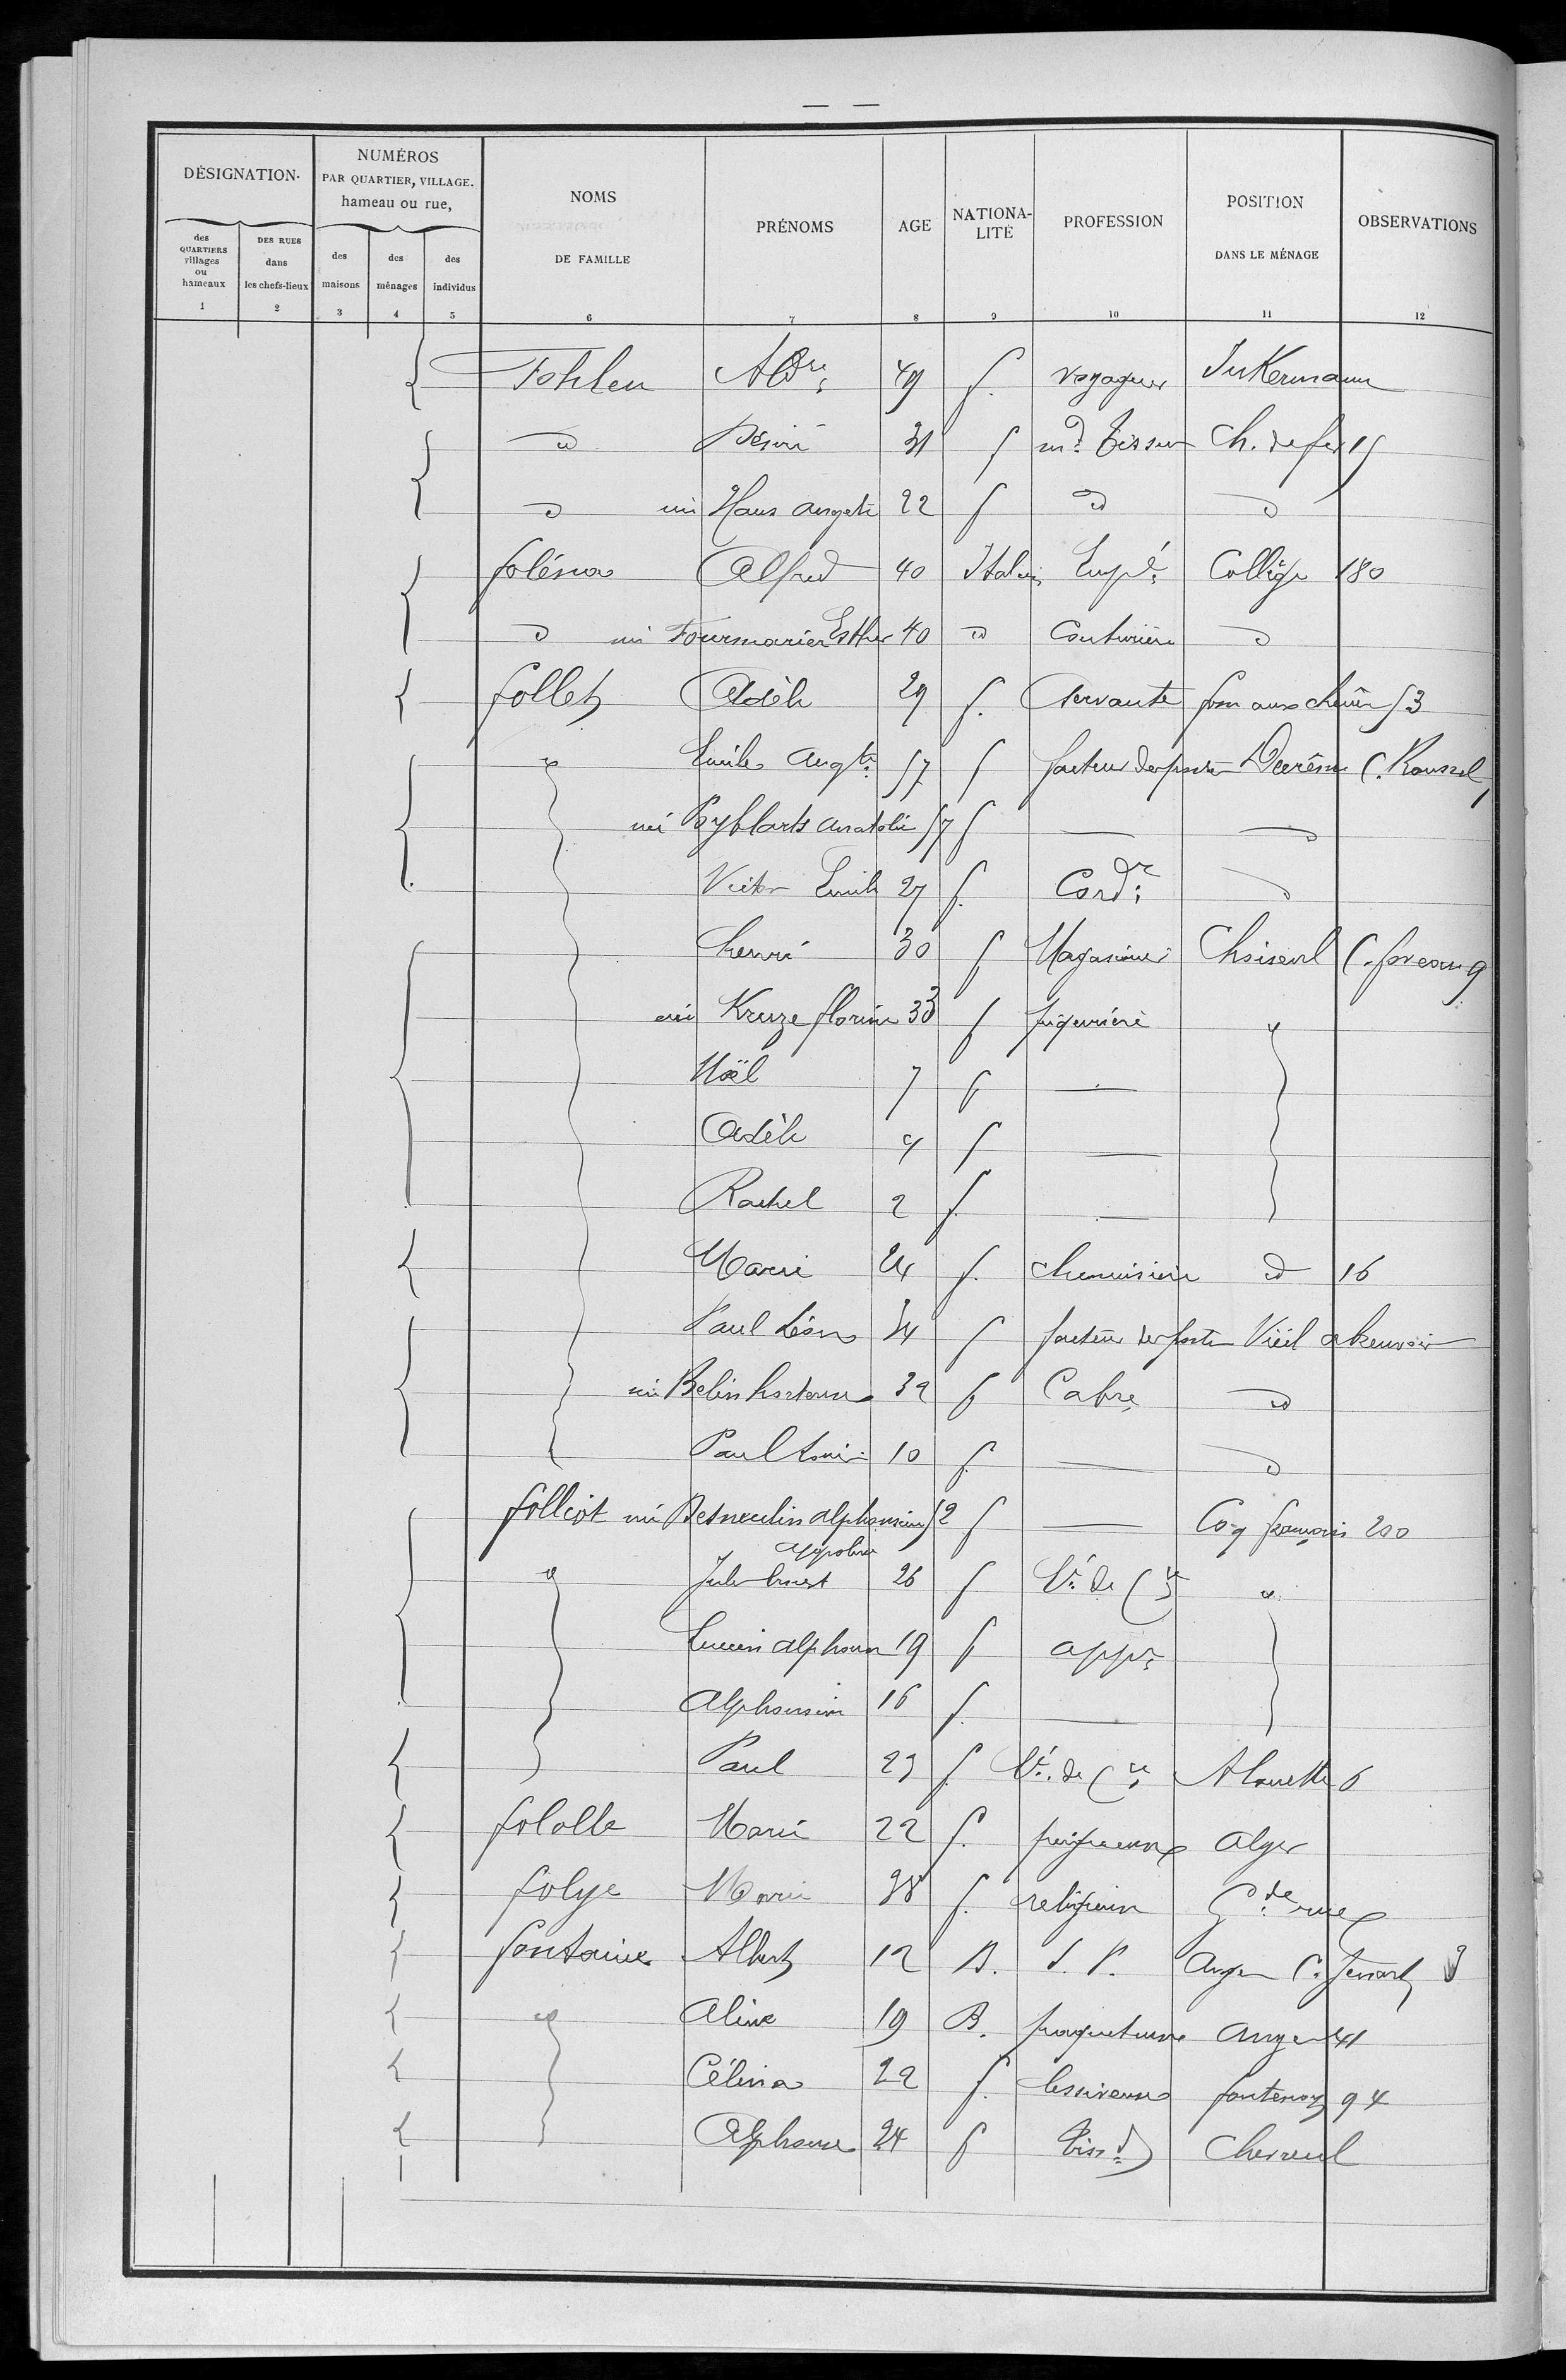 DÉSIGNATION.
NUMÉROS
PAR QUARTIER, VILLAGE.
hameau ou rue,
NOMS
DE FAMILLE
PRÉNOMS
AGE
NATIONA-
LITÉ
PROFESSION
POSITION
DANS LE MÉNAGE
OBSERVATIONS
des
QUARTIERS
villages
ou
hameaux
DES RUES
dans
les chefs-lieux
des
maisons
des
ménages
des
individus
1 2 3 4 5 6 7 8 9 10 11 12
Fohlen Aldre 49 f. voyageur Inkermann
d Désiré 31 f md Tissus Ch. de fer 15
d née Haus 22 f d d
Alfred 40 Italien Empé Collège 180
d née Fourmarier Esther 40 d Couturière d
follet Adèle 29 f. servante foss aux chênes 53
Emile Augte 57 f facteur des postes Decrême C. Roussel
née Anatolie 57 f — d
Victor Emile 27 f. Cordr d
henri 30 f Magasinier Choiseul C. 9
née Kruze florine 33 f piqurière
Noël 7 f —
Adèle 4 f —
Rachel 2 f. —
Marie 24 f. chemisière d 16
Paul Léon 34 f facteur des postes Vieil abreuvoir
née Belin hortense 32 f Cabre d
Paul Louis 10 f. — d
folliot née alphonsine 52 f — Coq français 200
Jules Ernest 26 f Vé de Cce
Lucien alphonse 19 f appr
Alphonsine 16 f. —
Paul 23 f. Vé. de Cce Alouette 6
Marie 22 f. peigneuse Alger
folye Marie 38 f. religieuse Gde rue
fontaine Albert 12 B. S. P. Anges C. 3
Aline 19 B. paqueteuse Anges 41
Célina 22 f. lessiveuse fontenoy 94
Alphonse 24 f Tissd Chevreul